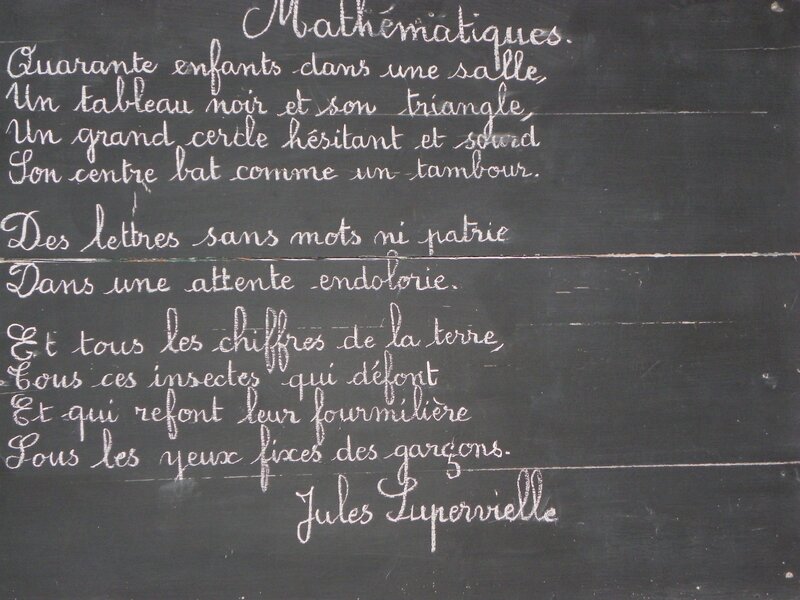 Mathématiques.
Quarante enfants dans une salle,
Un tableau noir et son triangle,
Un grand cercle hésitant et sourd
Son centre bat comme un tambour.
Des lettres sans mots ni patrie
Dans une attente endolorie.
Et tous les chiffres de la terre,
Tous ces insectes qui défont
Et qui refont leur fourmilière
Sous les yeux fixes des garçons.
Jules Supervielle